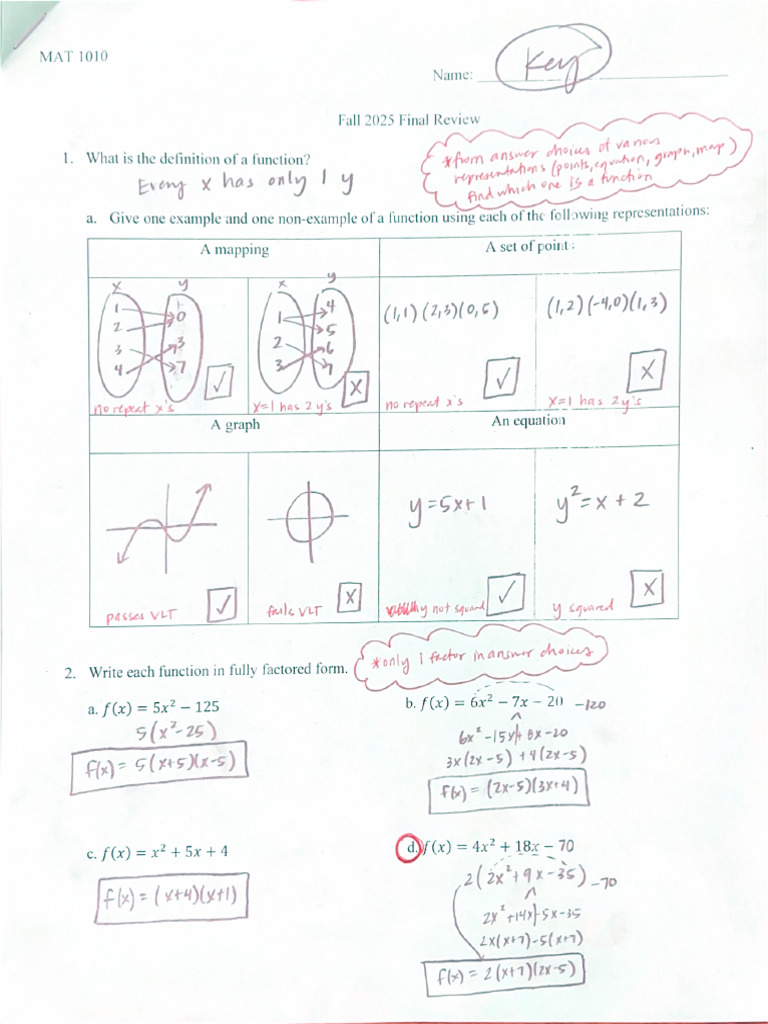 MAT 1010
Name: Key
Fall 2025 Final Review
1. What is the definition of a function?
Every x has only 1 y
*from answer choices of various
representations (points, equation, graph, map)
find which one is a function
a. Give one example and one non-example of a function using each of the following representations:
A mapping
A set of points
x y
1 0
2
3 3
4 7
✓
no repeat x's
x y
1 4
5
2 6
3 7
X
x=1 has 2 y's
(1,1) (2,3)(0,5)
✓
no repeat x's
(1,2)(-4,0)(1,3)
X
x=1 has 2y's
A graph
An equation
passes VLT ✓
fails VLT X
y=5x+1
y not squared ✓
y²=x+2
y squared X
2. Write each function in fully factored form.
*only 1 factor in answer choices
a. f(x) = 5x² − 125
5(x²-25)
f(x)= 5(x+5)(x-5)
b. f(x) = 6x² − 7x − 20 -120
6x²-15x+8x-20
3x(2x-5)+4(2x-5)
f(x)= (2x-5)(3x+4)
c. f(x) = x² + 5x + 4
f(x)= (x+4)(x+1)
d. f(x) = 4x² + 18x − 70
2(2x²+9x-35) -70
2x²+14x-5x-35
2x(x+7)-5(x+7)
f(x)= 2(x+7)(2x-5)